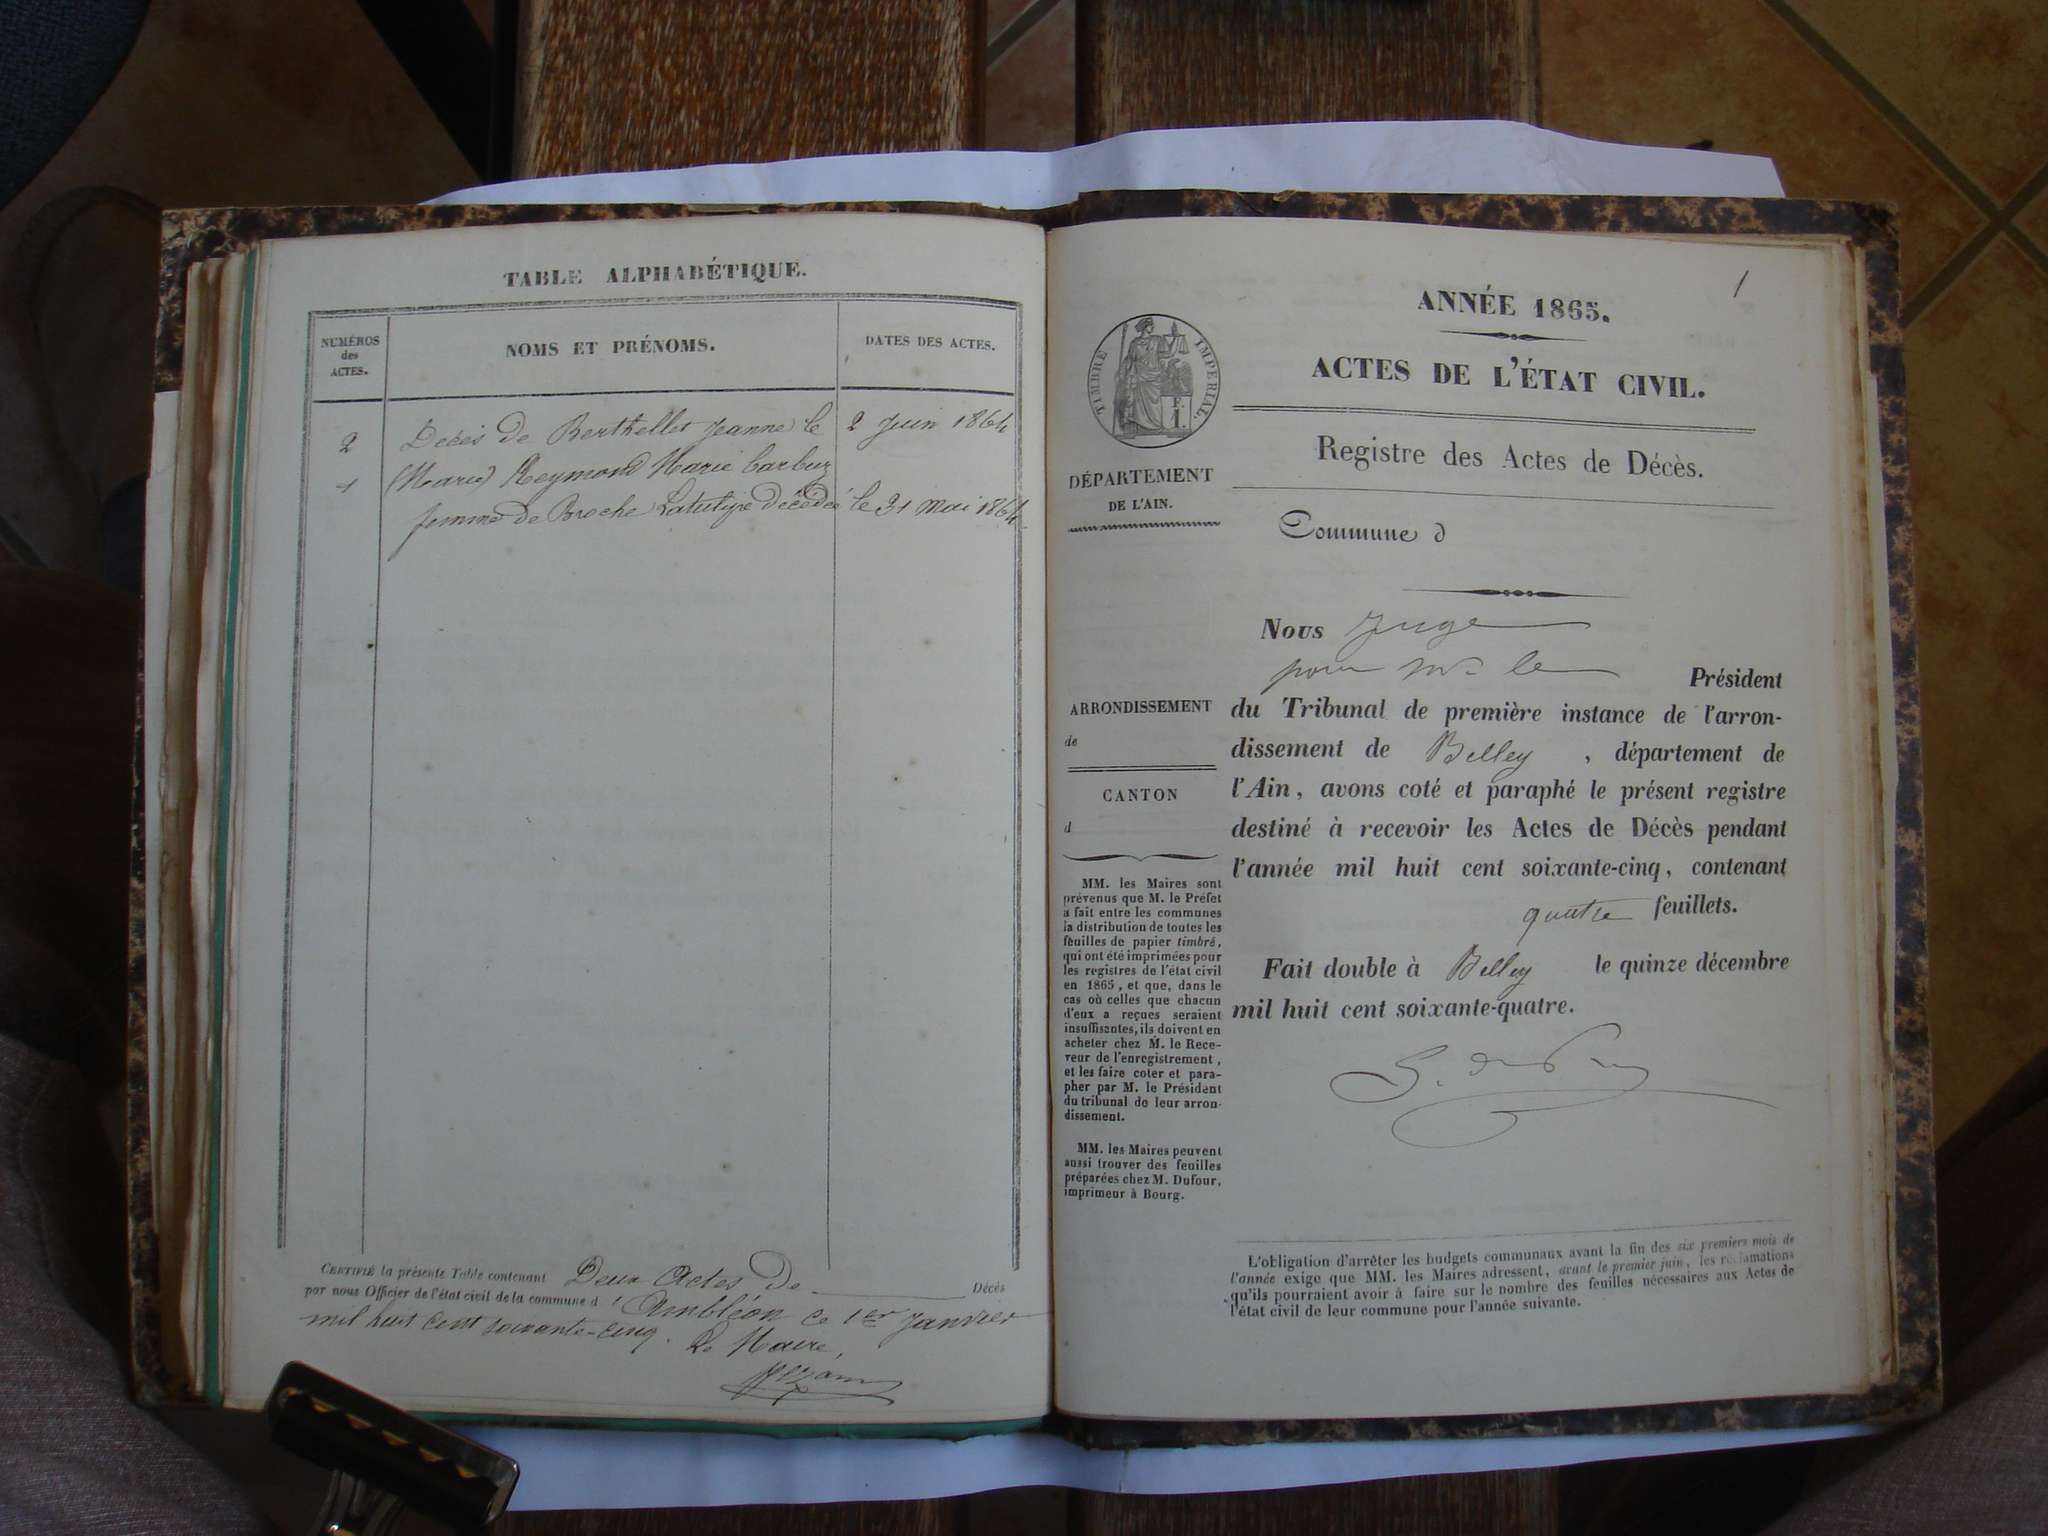 TABLE ALPHABÉTIQUE.
NUMÉROS
des
ACTES.
NOMS ET PRÉNOMS.
DATES DES ACTES.
2 Décès de Berthellet Jeanne le 2 Juin 1864
1 (Marie) Reymond Marie
femme de Broche décédée le 31 mai 1864
CERTIFIÉ la présente Table contenant Deux Actes de Décès
por nous Officier de l'état civil de la commune d'Ambléon ce 1er Janvier
mil huit cent soixante-cinq. Le Maire,
1
ANNÉE 1865.
ACTES DE L'ÉTAT CIVIL.
Registre des Actes de Décès.
TIMBRE IMPERIAL.
F.
1.
DÉPARTEMENT
DE L'AIN.
Commune d
ARRONDISSEMENT
de
CANTON
d
MM. les Maires sont
prévenus que M. le Préfet
a fait entre les communes
la distribution de toutes les
feuilles de papier timbré,
qui ont été imprimées pour
les registres de l'état civil
en 1865, et que, dans le
cas où celles que chacun
d'eux a reçues seraient
insuffisantes, ils doivent en
acheter chez M. le Rece-
veur de l'enregistrement,
et les faire coter et para-
pher par M. le Président
du tribunal de leur arron-
dissement.
MM. les Maires peuvent
aussi trouver des feuilles
préparées chez M. Dufour,
imprimeur à Bourg.
Nous Juge
pour Mr le Président
du Tribunal de première instance de l'arron-
dissement de Belley, département de
l'Ain, avons coté et paraphé le présent registre
destiné à recevoir les Actes de Décès pendant
l'année mil huit cent soixante-cinq, contenant
quatre feuillets.
Fait double à Belley le quinze décembre
mil huit cent soixante-quatre.
L'obligation d'arrêter les budgets communaux avant la fin des six premiers mois de
l'année exige que MM. les Maires adressent, avant le premier juin, les réclamations
qu'ils pourraient avoir à faire sur le nombre des feuilles nécessaires aux Actes de
l'état civil de leur commune pour l'année suivante.